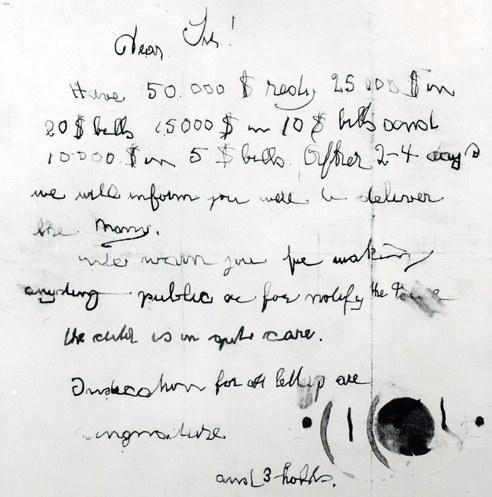 Dear Sir!
Have 50.000 $ redy 25 000 $ in
20 $ bills 15000 $ in 10 $ bills and
10000 $ in 5 $ bills. After 2-4 days
we will inform you were to deliver
the Mony.
We warn you for making
anyding public or for notify the
the child is in gute care.
Indication for all letters are
singnature
and 3 holds.